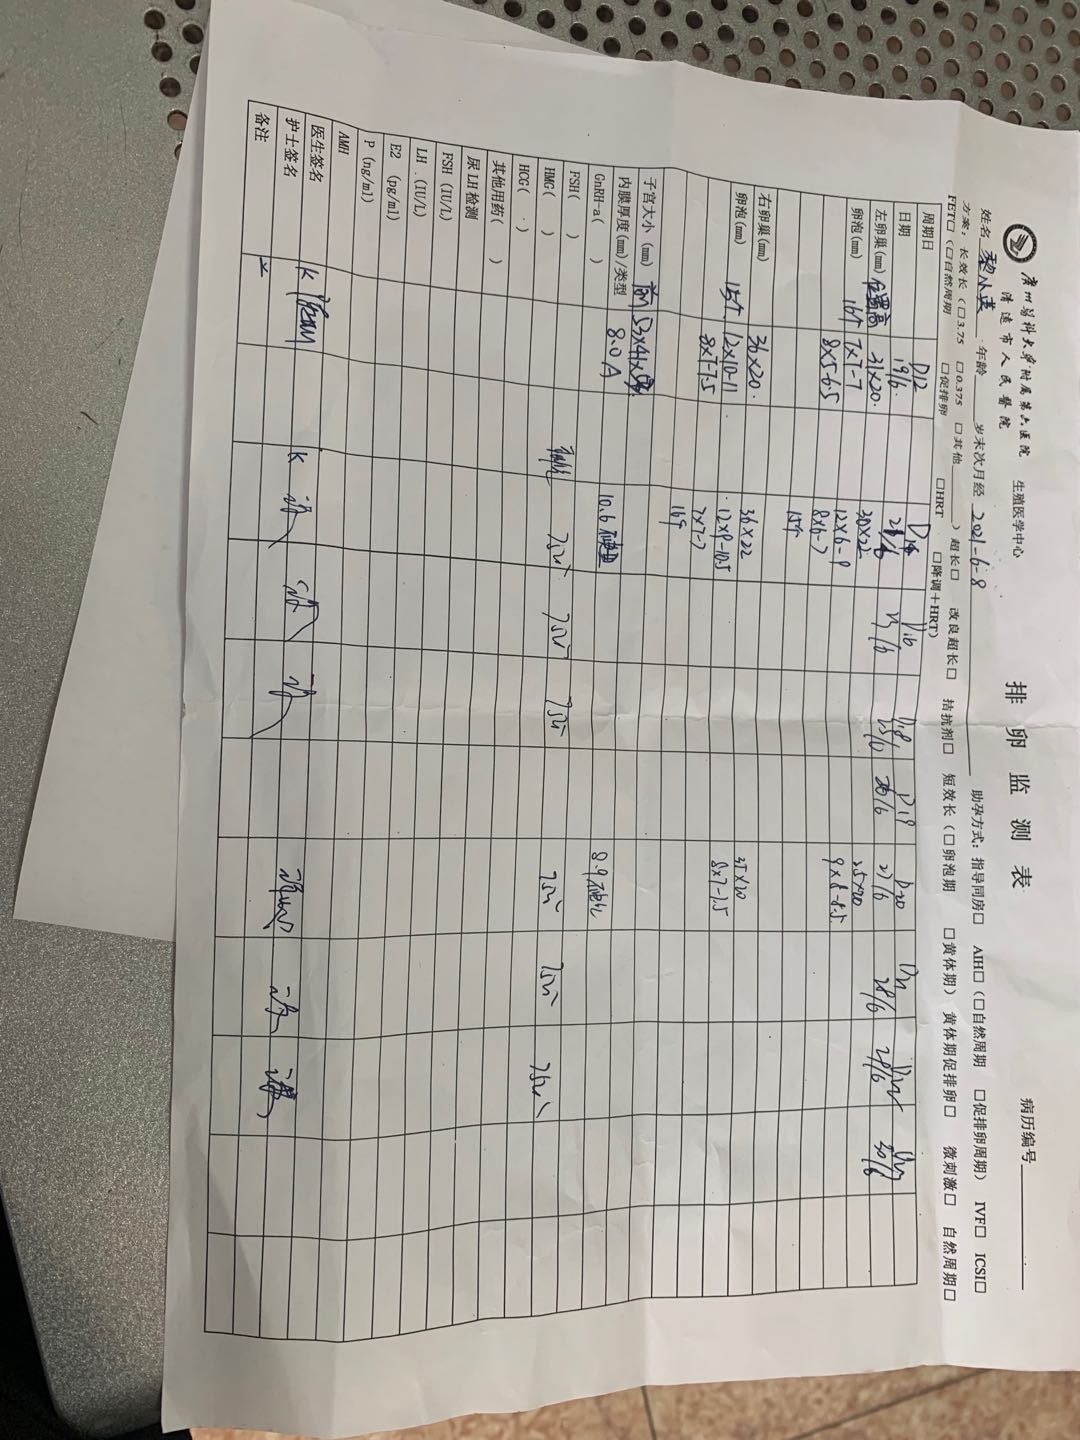 广州医科大学附属第六医院
清远市人民医院
生殖医学中心
排卵监测表
病历编号
姓名 黎小英 年龄 岁末次月经 2021-6-8 助孕方式：指导同房□ AIH□（□自然周期 □促排卵周期） IVF□ ICSI□
方案：长效长（□3.75 □0.375 □其他 ） 超长□ 改良超长□ 拮抗剂□ 短效长（□卵泡期 □黄体期） 黄体期促排卵□ 微刺激□ 自然周期□
FET□（□自然周期 □促排卵 □HRT □降调+HRT）
周期日 D12 D16 D18 D19 D20
日期 19/6 26/6 27/6 28/6 29/6 30/6
左卵巢(mm) 位置高 31×20 30×22 25×20
卵泡(mm) 16个 7×7-7 12×6-9 9×8-8.5
8×5-6.5 8×6-7
15个
右卵巢(mm) 36×20 36×22
卵泡(mm) 15个 12×10-11 12×9-10.5
8×7-7.5 7×7-7 8×7-7.5
16个
子宫大小(mm) 前 53×41×
内膜厚度(mm)/类型 8.0 A 10.6 8.9
GnRH-a( )
FSH( )
HMG( ) 75u 75u 75u 75u 75u 75u
HCG( )
其他用药( )
尿LH检测
FSH (IU/L)
LH (IU/L)
E2 (pg/ml)
P (ng/ml)
AMH
医生签名
护士签名
备注